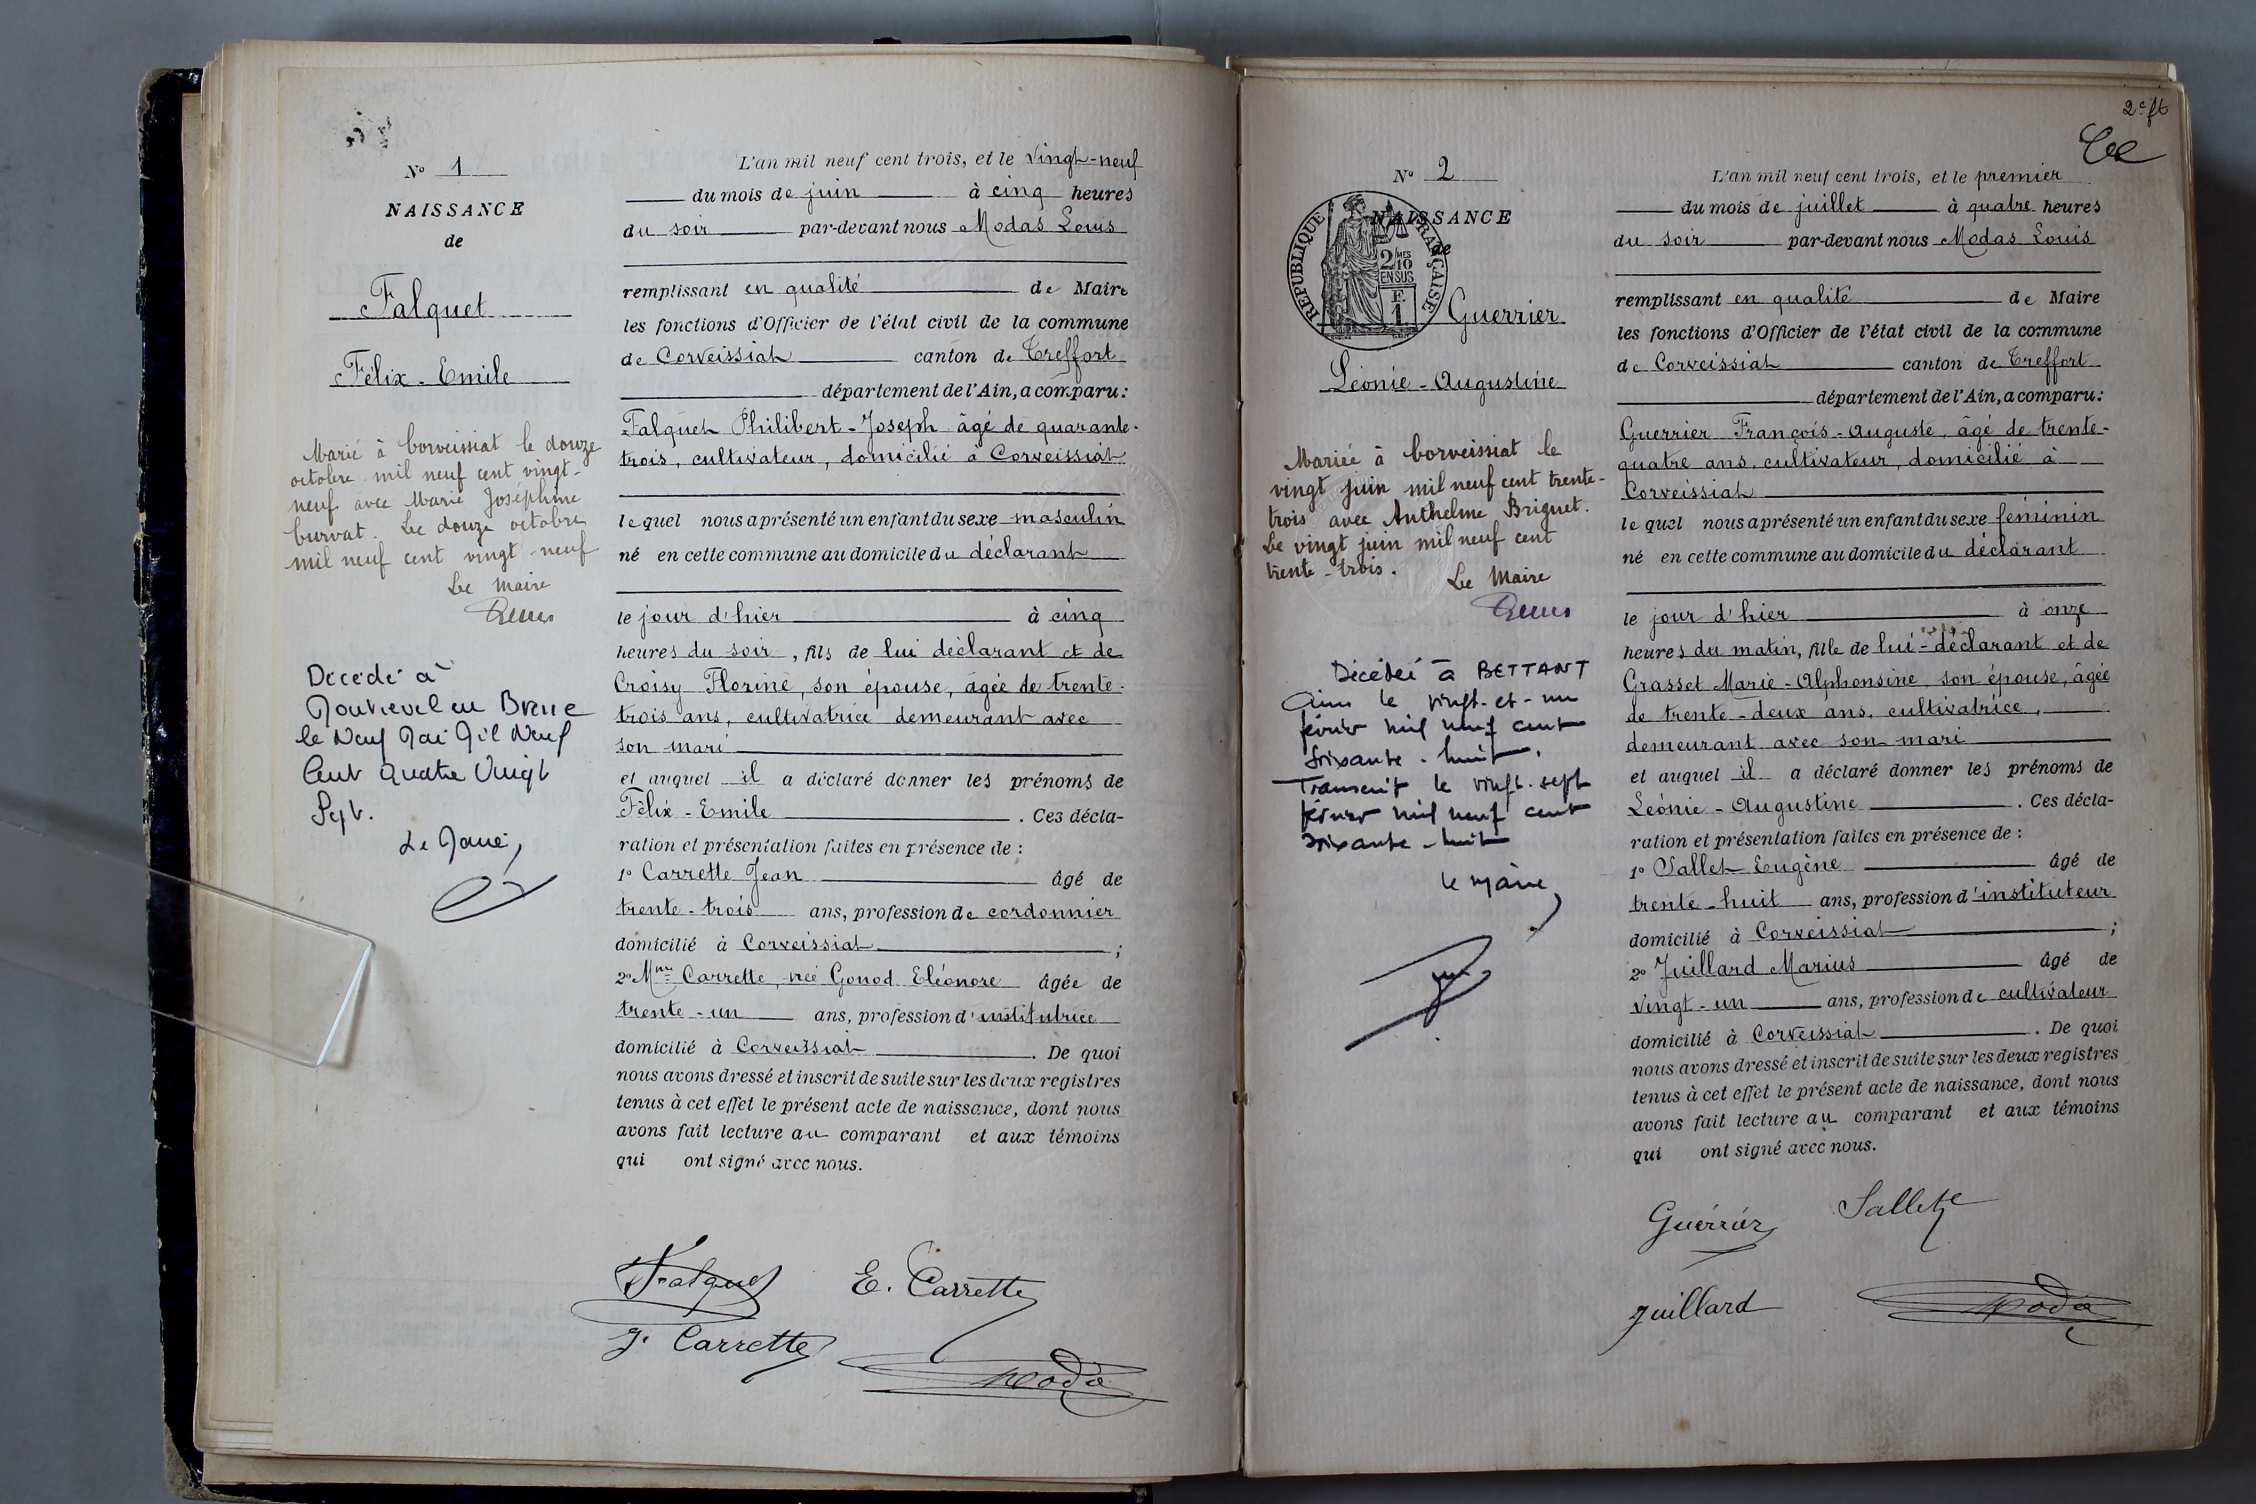 N° 1
NAISSANCE
de
Falquet
Félix-Emile
Marié à Corveissiat le douze
octobre mil neuf cent vingt-
neuf avec Marie Joséphine
Curvat. Le douze octobre
mil neuf cent vingt-neuf
Le Maire
Décédé à
Montrevel en Bresse
le Neuf Mai Mil Neuf
Cent Quatre Vingt
Sept.
Le Maire,
L'an mil neuf cent trois, et le vingt-neuf
du mois de juin à cinq heures
du soir par-devant nous Modas Louis
remplissant en qualité de Maire
les fonctions d'Officier de l'état civil de la commune
de Corveissiat canton de Treffort
département de l'Ain, a comparu:
Falquet Philibert-Joseph âgé de quarante-
trois, cultivateur, domicilié à Corveissiat
lequel nous a présenté un enfant du sexe masculin
né en cette commune au domicile du déclarant
le jour d'hier à cinq
heures du soir, fils de lui déclarant et de
Croisy Florine, son épouse, âgée de trente-
trois ans, cultivatrice demeurant avec
son mari
et auquel il a déclaré donner les prénoms de
Félix-Emile . Ces décla-
ration et présentation faites en présence de :
1° Carrette Jean âgé de
trente-trois ans, profession de cordonnier
domicilié à Corveissiat ;
2° Mme Carrette, née Gonod Eléonore âgée de
trente-un ans, profession d'institutrice
domicilié à Corveissiat . De quoi
nous avons dressé et inscrit de suite sur les deux registres
tenus à cet effet le présent acte de naissance, dont nous
avons fait lecture au comparant et aux témoins
qui ont signé avec nous.
Falquet E. Carrette
J. Carrette Modas
2e ft
N° 2
NAISSANCE
de
RÉPUBLIQUE FRANÇAISE
2 MES
10
EN SUS
F.
1
Guerrier
Léonie-Augustine
Mariée à Corveissiat le
vingt juin mil neuf cent trente-
trois avec Anthelme Briguet.
Le vingt juin mil neuf cent
trente-trois.
Le Maire
Décédée à BETTANT
Ain le vingt-et-un
février mil neuf cent
soixante-huit.
Transcrit le vingt-sept
février mil neuf cent
soixante-huit
le Maire,
L'an mil neuf cent trois, et le premier
du mois de juillet à quatre heures
du soir par-devant nous Modas Louis
remplissant en qualité de Maire
les fonctions d'Officier de l'état civil de la commune
de Corveissiat canton de Treffort
département de l'Ain, a comparu:
Guerrier François-Auguste, âgé de trente-
quatre ans, cultivateur, domicilié à
Corveissiat
lequel nous a présenté un enfant du sexe féminin
né en cette commune au domicile du déclarant
le jour d'hier à onze
heures du matin, fille de lui-déclarant et de
Grasset Marie-Alphonsine, son épouse, âgée
de trente-deux ans, cultivatrice,
demeurant avec son mari
et auquel il a déclaré donner les prénoms de
Léonie-Augustine . Ces décla-
ration et présentation faites en présence de :
1° Sallet Eugène âgé de
trente-huit ans, profession d'instituteur
domicilié à Corveissiat ;
2° Juillard Marius âgé de
vingt-un ans, profession de cultivateur
domicilié à Corveissiat . De quoi
nous avons dressé et inscrit de suite sur les deux registres
tenus à cet effet le présent acte de naissance, dont nous
avons fait lecture au comparant et aux témoins
qui ont signé avec nous.
Guerrier Sallet
Juillard Modas